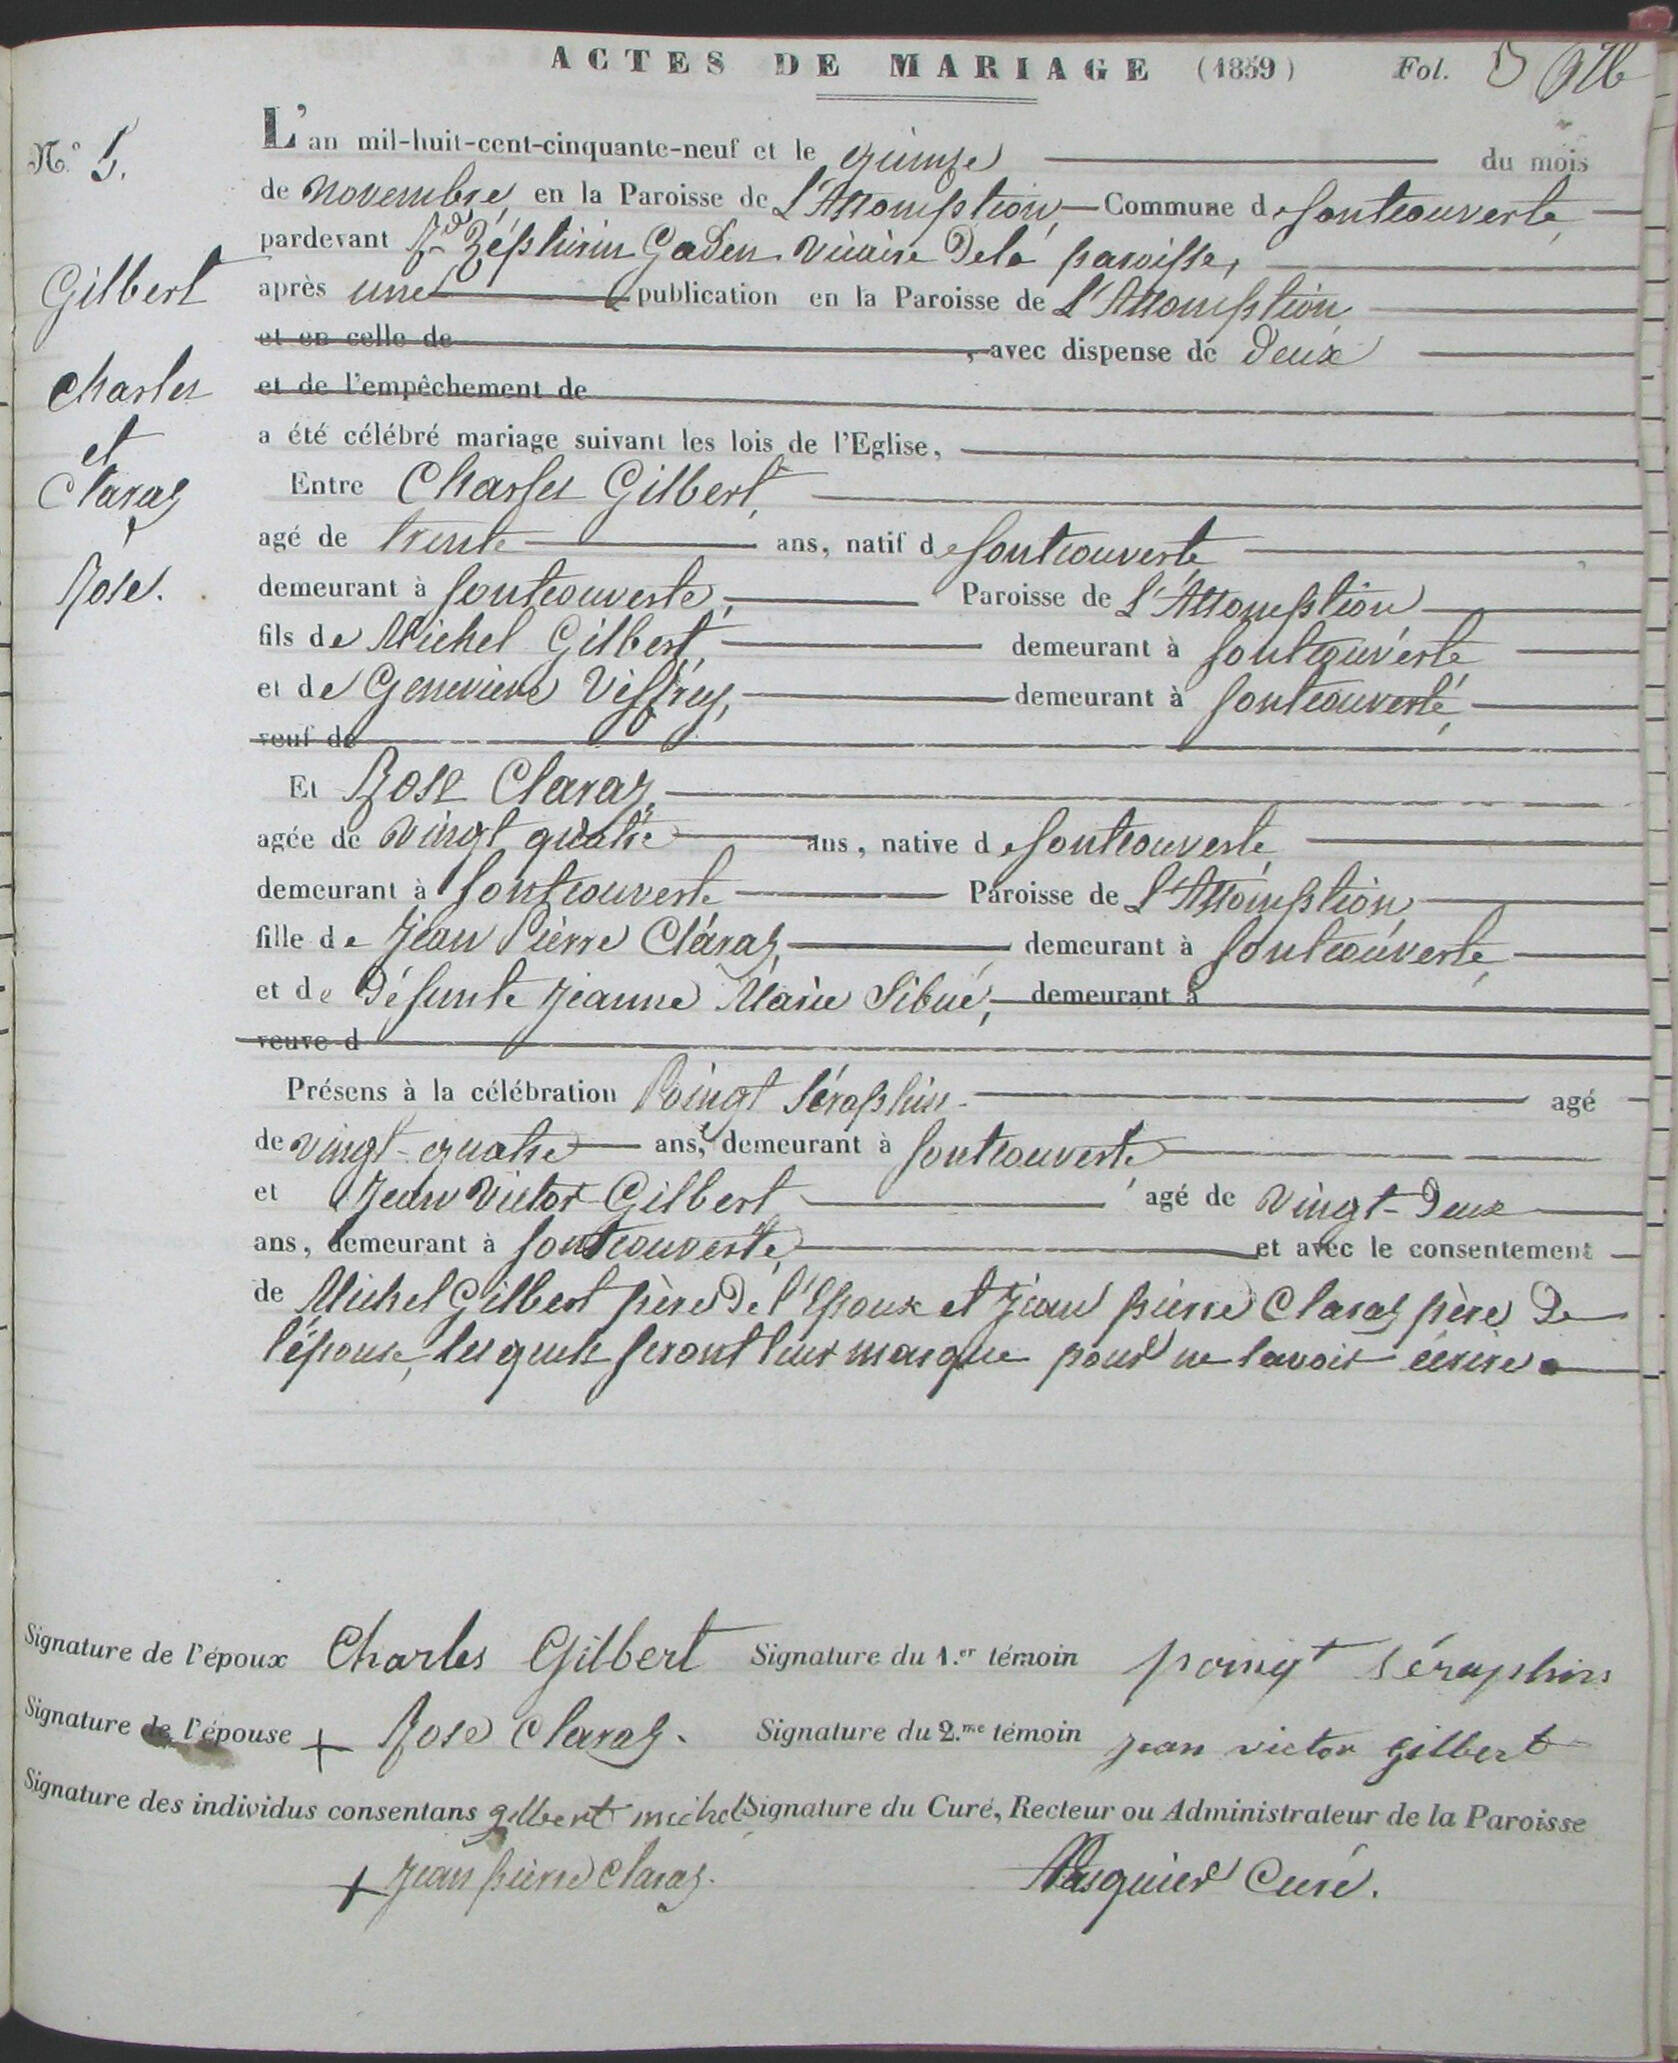 ACTES DE MARIAGE (1859) Fol. 5
N.º 5.
L'an mil-huit-cent-cinquante-neuf et le quinze du mois
de novembre, en la Paroisse de L'Assomption, Commune de fontcouverte,
pardevant Rd Zéphirin Gaden vicaire de la paroisse,
Gilbert
après une publication en la Paroisse de L'Assomption
et en celle de , avec dispense de deux
Charles
et de l'empêchement de
a été célébré mariage suivant les lois de l'Eglise,
et
Claraz
Entre Charles Gilbert,
agé de trente ans, natif de fontcouverte
Rose.
demeurant à fontcouverte, Paroisse de L'Assomption
fils de Michel Gilbert, demeurant à fontcouverte
et de Geneviève Viffrey, demeurant à fontcouverte,
veuf de
Et Rose Claraz,
agée de vingt quatre ans, native de fontcouverte,
demeurant à fontcouverte Paroisse de L'Assomption,
fille de Jean Pierre Claraz, demeurant à fontcouverte,
et de défunte Jeanne Marie Sibué, demeurant à
veuve d
Présens à la célébration Poingt Séraphin agé
de vingt-quatre ans, demeurant à fontcouverte
et Jean Victor Gilbert agé de vingt-deux
ans, demeurant à fontcouverte, et avec le consentement
de Michel Gilbert père de l'Epoux et Jean pierre Claraz père de
l'épouse, lesquels feront leur marque pour ne savoir écrire.
Signature de l'époux Charles Gilbert Signature du 1.er témoin poingt séraphin
Signature de l'épouse + Rose Claraz. Signature du 2.me témoin jean victor gilbert
Signature des individus consentans gilbert michel Signature du Curé, Recteur ou Administrateur de la Paroisse
+ Jean pierre Claraz. Pasquier Curé.